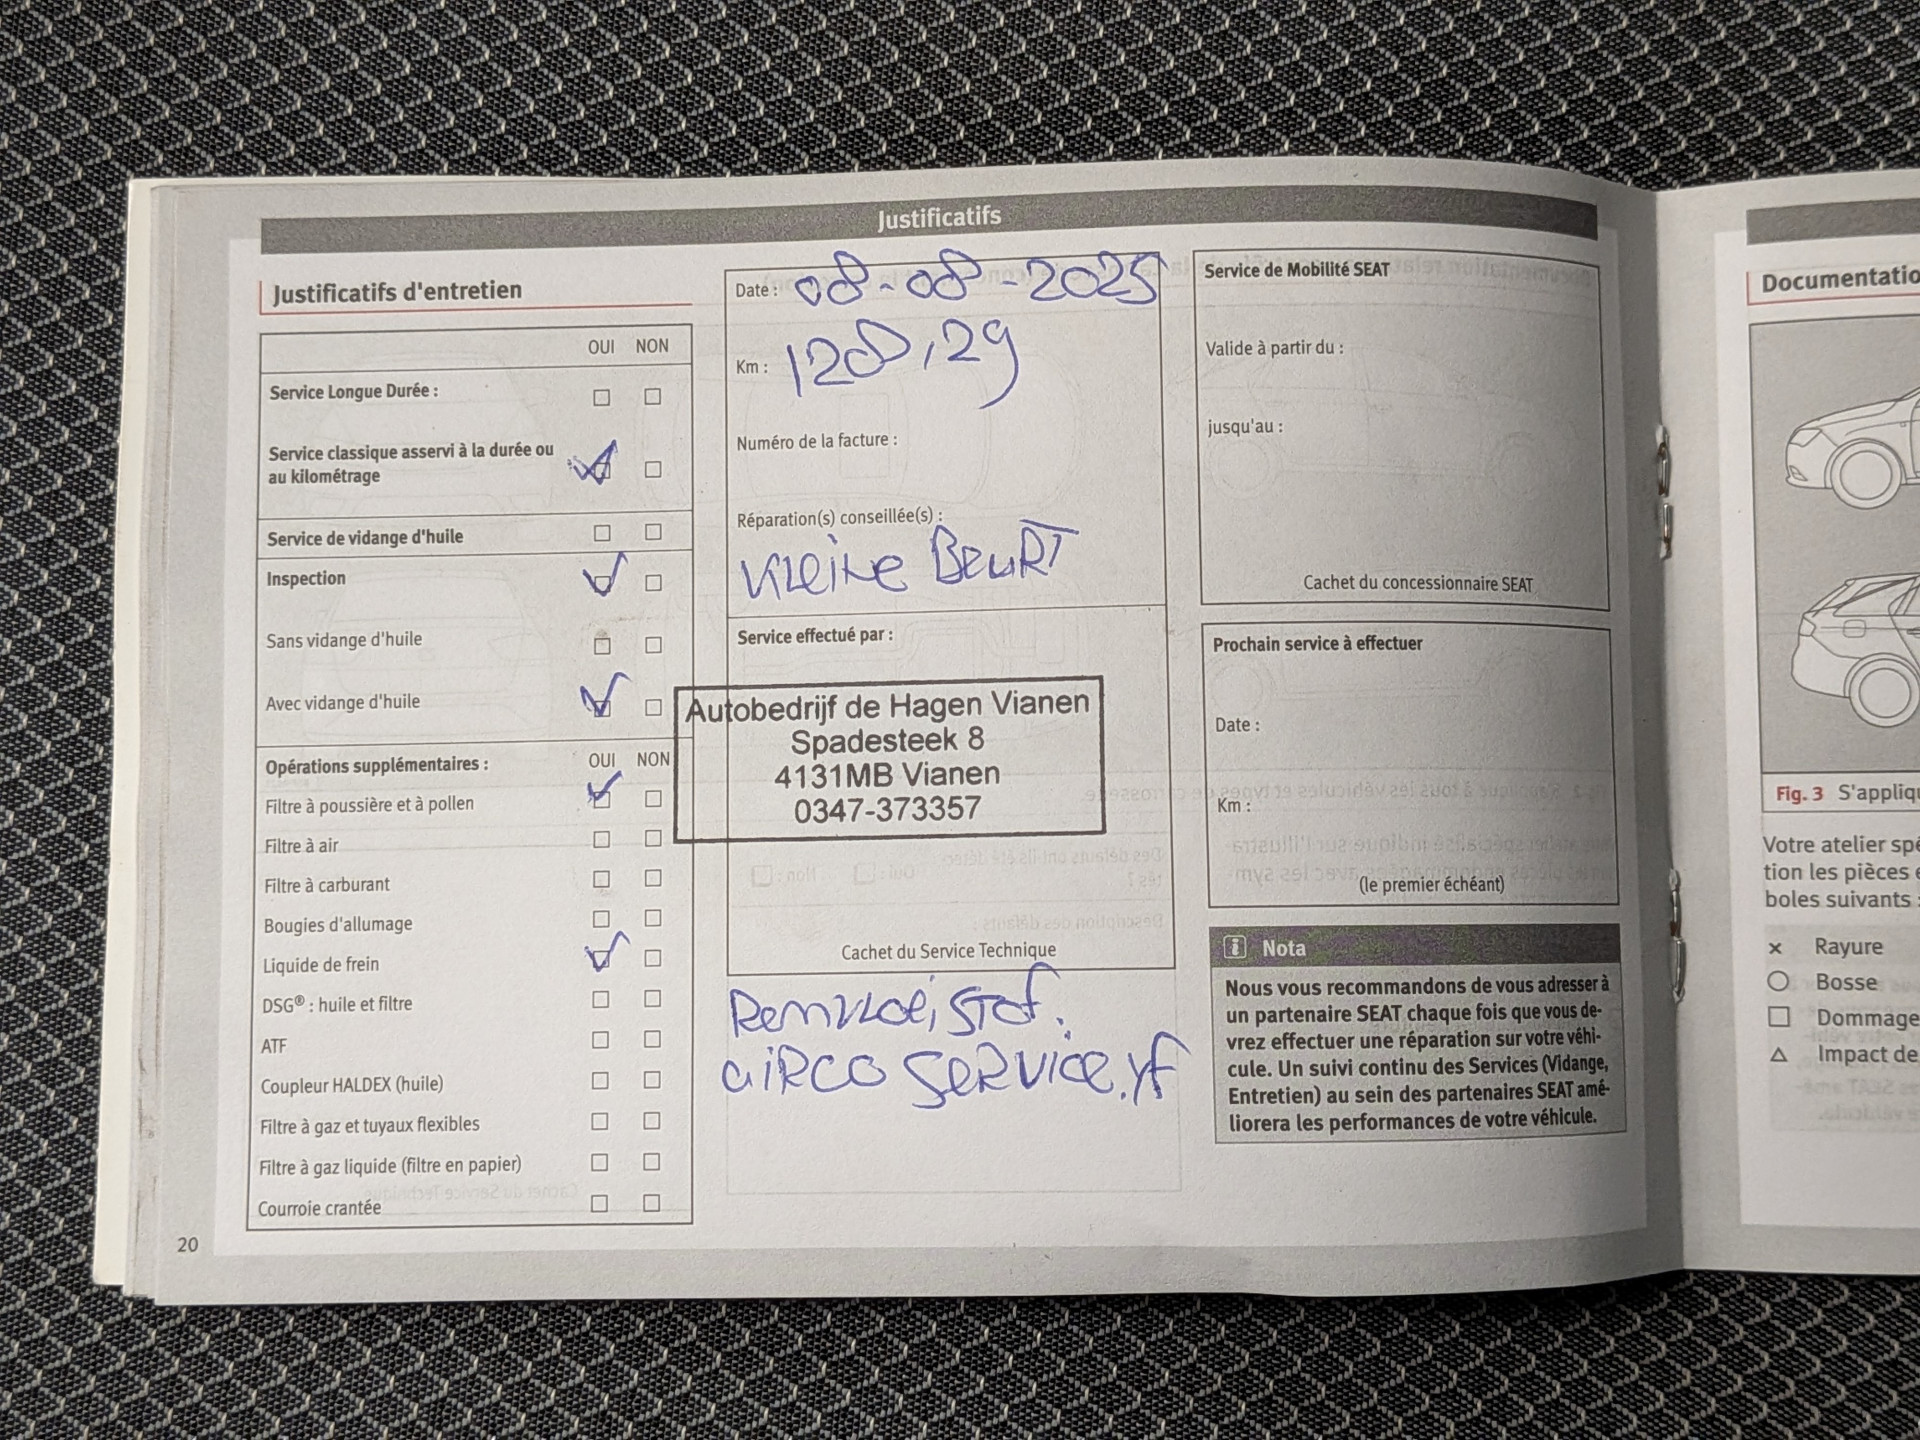 Justificatifs
Justificatifs d'entretien
OUI NON
Service Longue Durée :
Service classique asservi à la durée ou
au kilométrage
Service de vidange d'huile
Inspection
Sans vidange d'huile
Avec vidange d'huile
Opérations supplémentaires : OUI NON
Filtre à poussière et à pollen
Filtre à air
Filtre à carburant
Bougies d'allumage
Liquide de frein
DSG® : huile et filtre
ATF
Coupleur HALDEX (huile)
Filtre à gaz et tuyaux flexibles
Filtre à gaz liquide (filtre en papier)
Courroie crantée
20
Date : 08-08-2025
Km : 1208,29
Numéro de la facture :
Réparation(s) conseillée(s) :
Kleine Beurt
Service effectué par :
Autobedrijf de Hagen Vianen
Spadesteek 8
4131MB Vianen
0347-373357
Cachet du Service Technique
Remvloeistof.
airco service.yf
Service de Mobilité SEAT
Valide à partir du :
jusqu'au :
Cachet du concessionnaire SEAT
Prochain service à effectuer
Date :
Km :
(le premier échéant)
i Nota
Nous vous recommandons de vous adresser à
un partenaire SEAT chaque fois que vous de-
vrez effectuer une réparation sur votre véhi-
cule. Un suivi continu des Services (Vidange,
Entretien) au sein des partenaires SEAT amé-
liorera les performances de votre véhicule.
Documentatio
Fig. 3 S'appliqu
Votre atelier spé
tion les pièces e
boles suivants :
× Rayure
○ Bosse
□ Dommage
△ Impact de